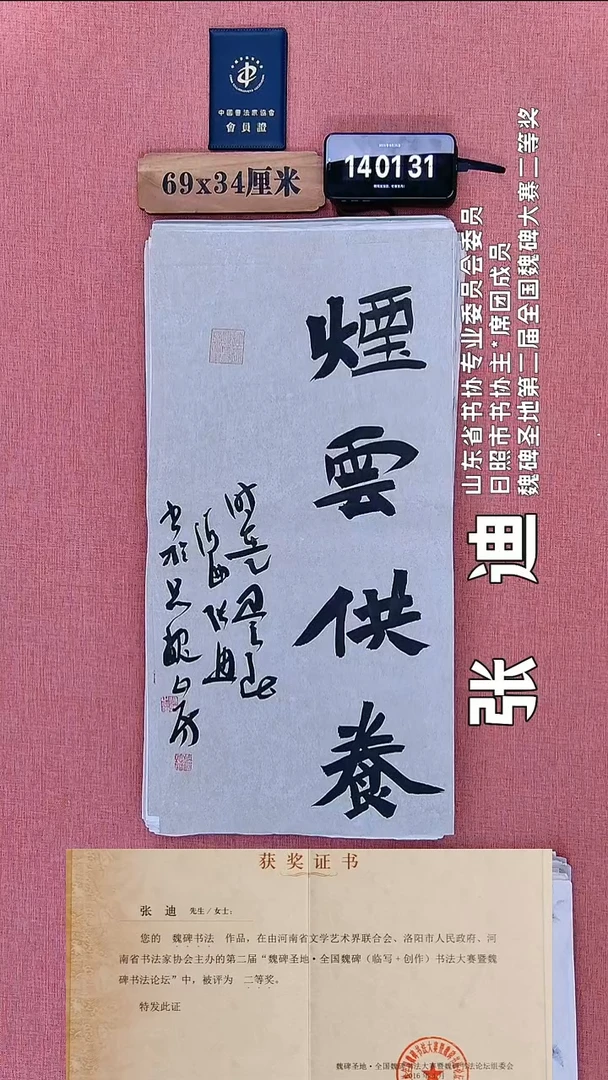 中国书法家协会
會員證
69x34厘米
14 01 31
煙雲供養
山东省书协专业委员会委员
日照市书协主*席团成员
魏碑圣地第二届全国魏碑大赛二等奖
张迪
获奖证书
张 迪 先生/女士:
您的 魏碑书法 作品，在由河南省文学艺术界联合会、洛阳市人民政府、河
南省书法家协会主办的第二届“魏碑圣地·全国魏碑（临写+创作）书法大赛暨魏
碑书法论坛”中，被评为 二等奖。
特发此证
魏碑圣地·全国魏碑书法大赛暨魏碑书法论坛组委会